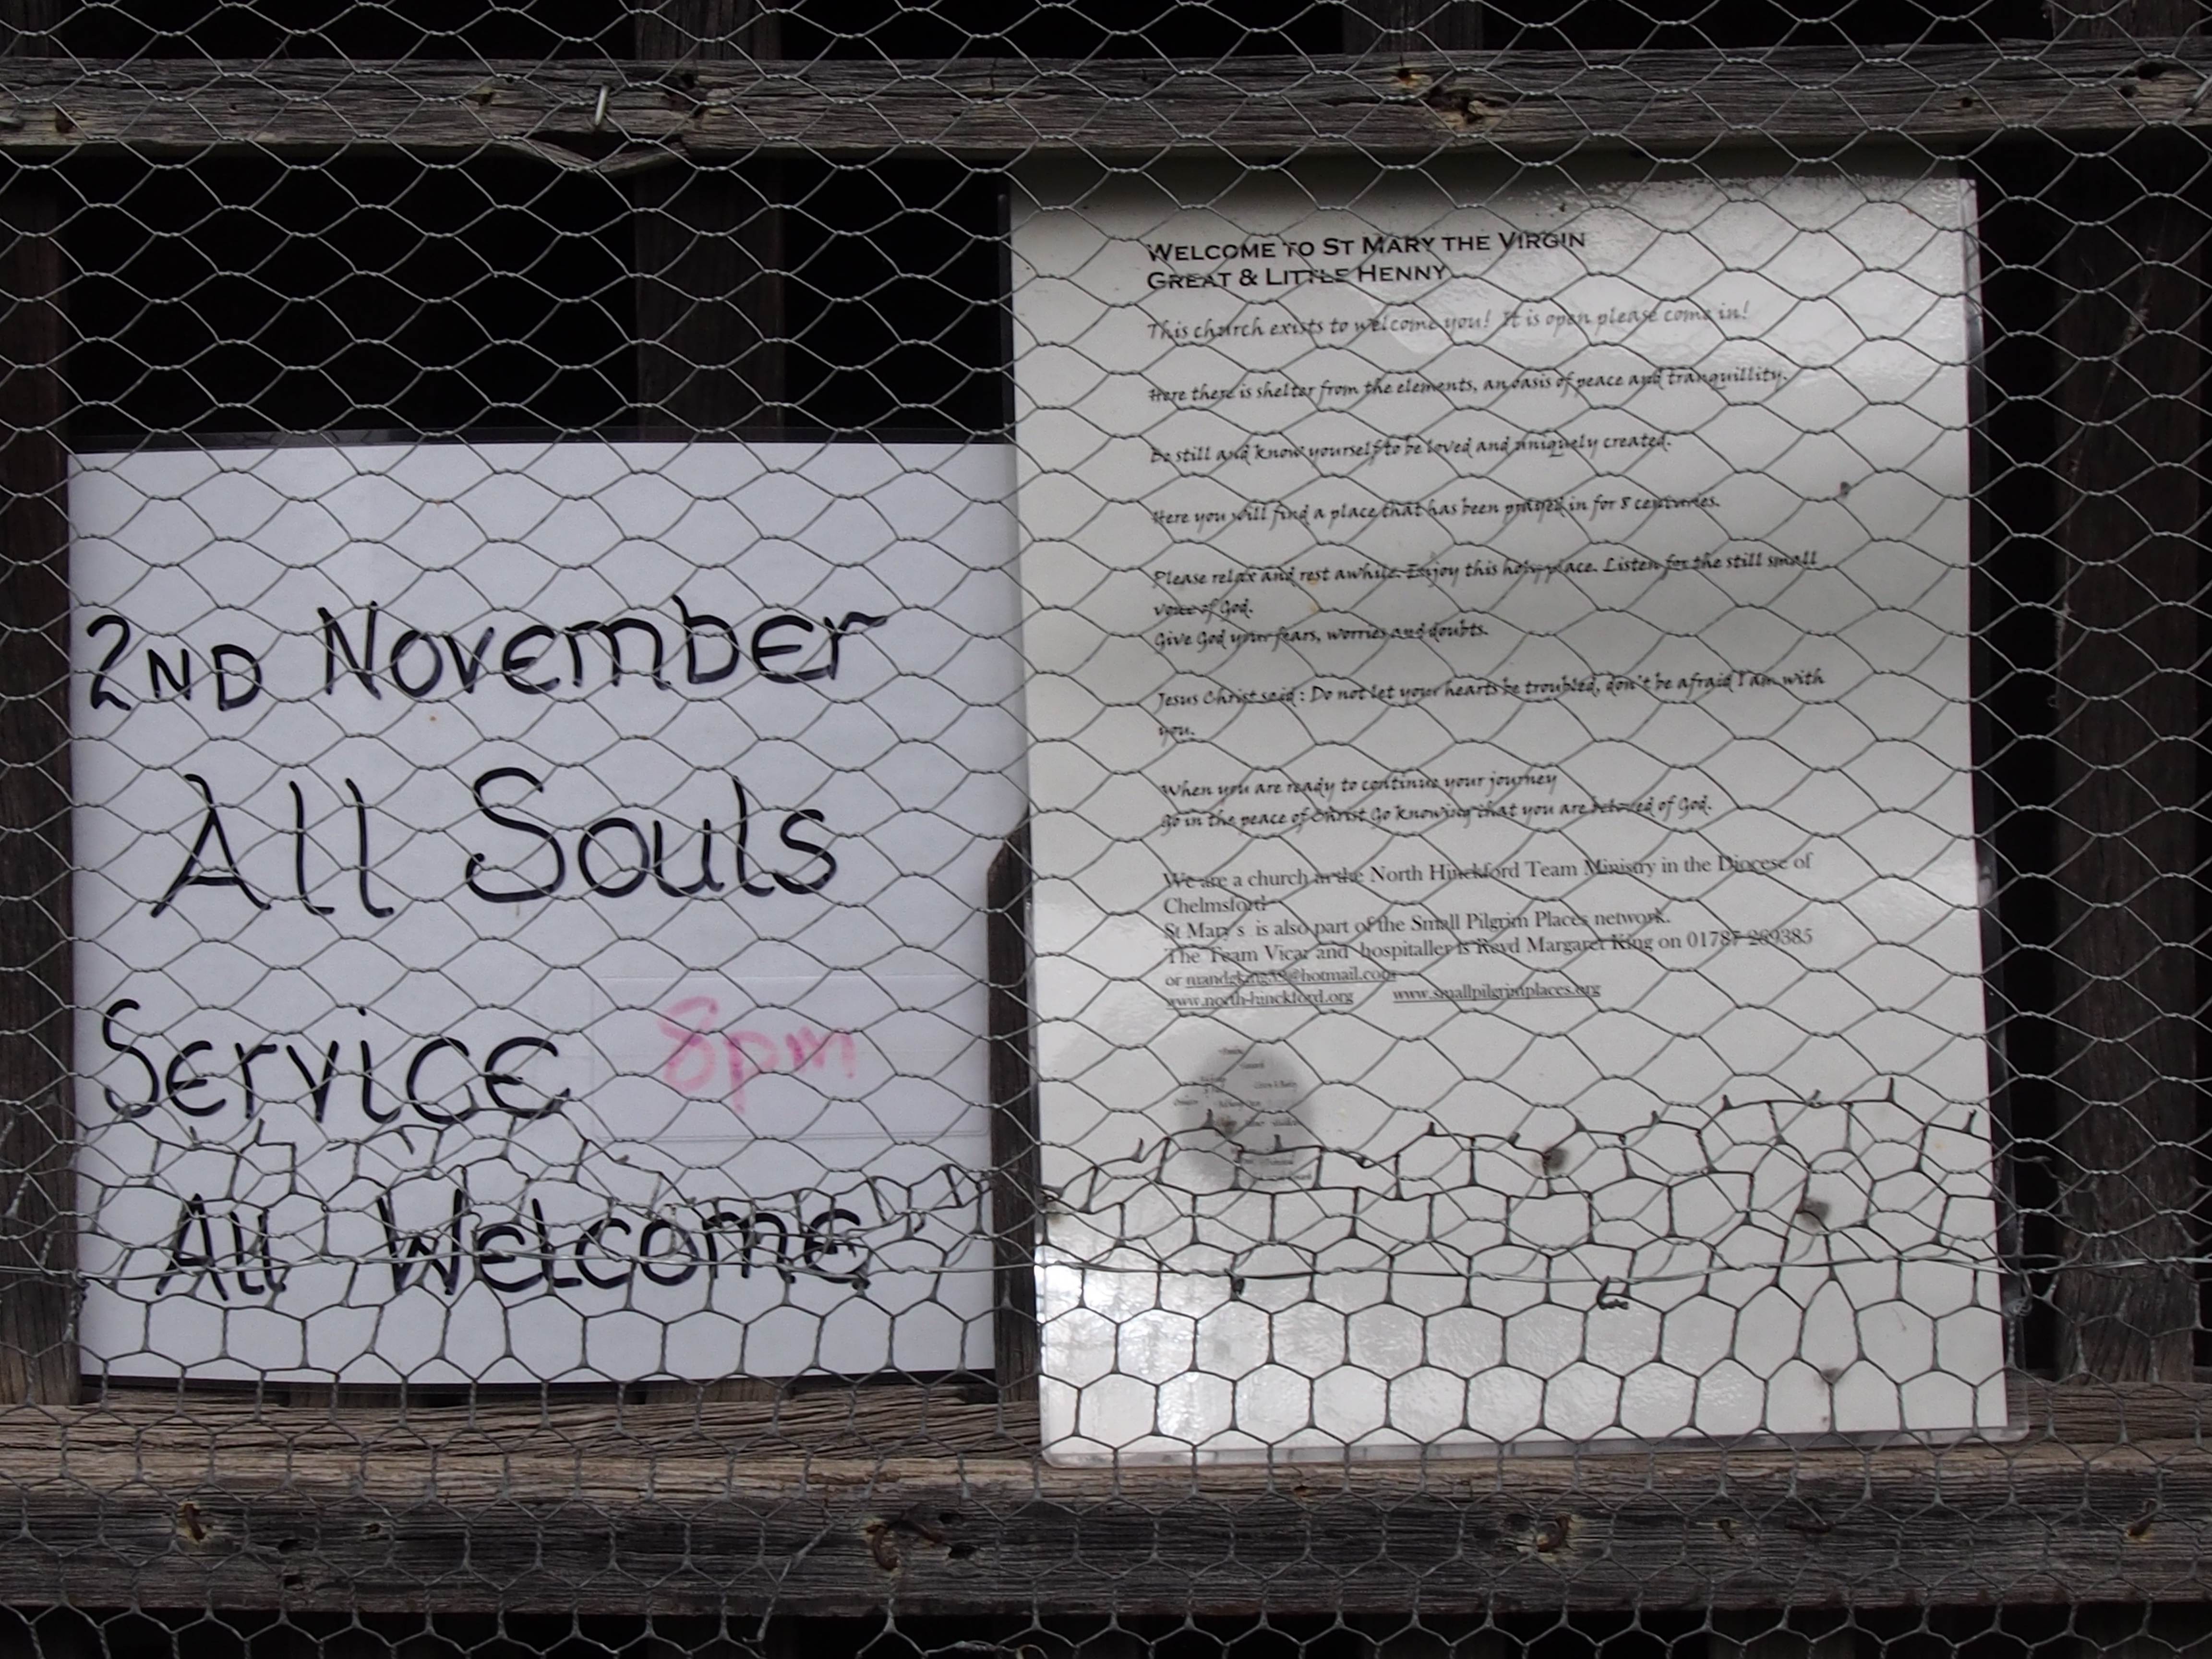 2ND November
All Souls
Service 8pm
All Welcome
WELCOME TO ST MARY THE VIRGIN
GREAT & LITTLE HENNY
This church exists to welcome you! It is open please come in!
Here there is shelter from the elements, an oasis of peace and tranquillity.
Be still and know yourself to be loved and uniquely created.
Here you will find a place that has been prayed in for 8 centuries.
Please relax and rest awhile. Enjoy this holy place. Listen for the still small
voice of God.
Give God your fears, worries and doubts.
Jesus Christ said: Do not let your hearts be troubled, don't be afraid I am with
you.
When you are ready to continue your journey
Go in the peace of Christ Go knowing that you are beloved of God.
We are a church in the North Hinckford Team Ministry in the Diocese of
Chelmsford
St Mary's is also part of the Small Pilgrim Places network.
The Team Vicar and hospitaller is Revd Margaret King on 01787 269385
or
www.north-hinckford.org www.smallpilgrimplaces.org